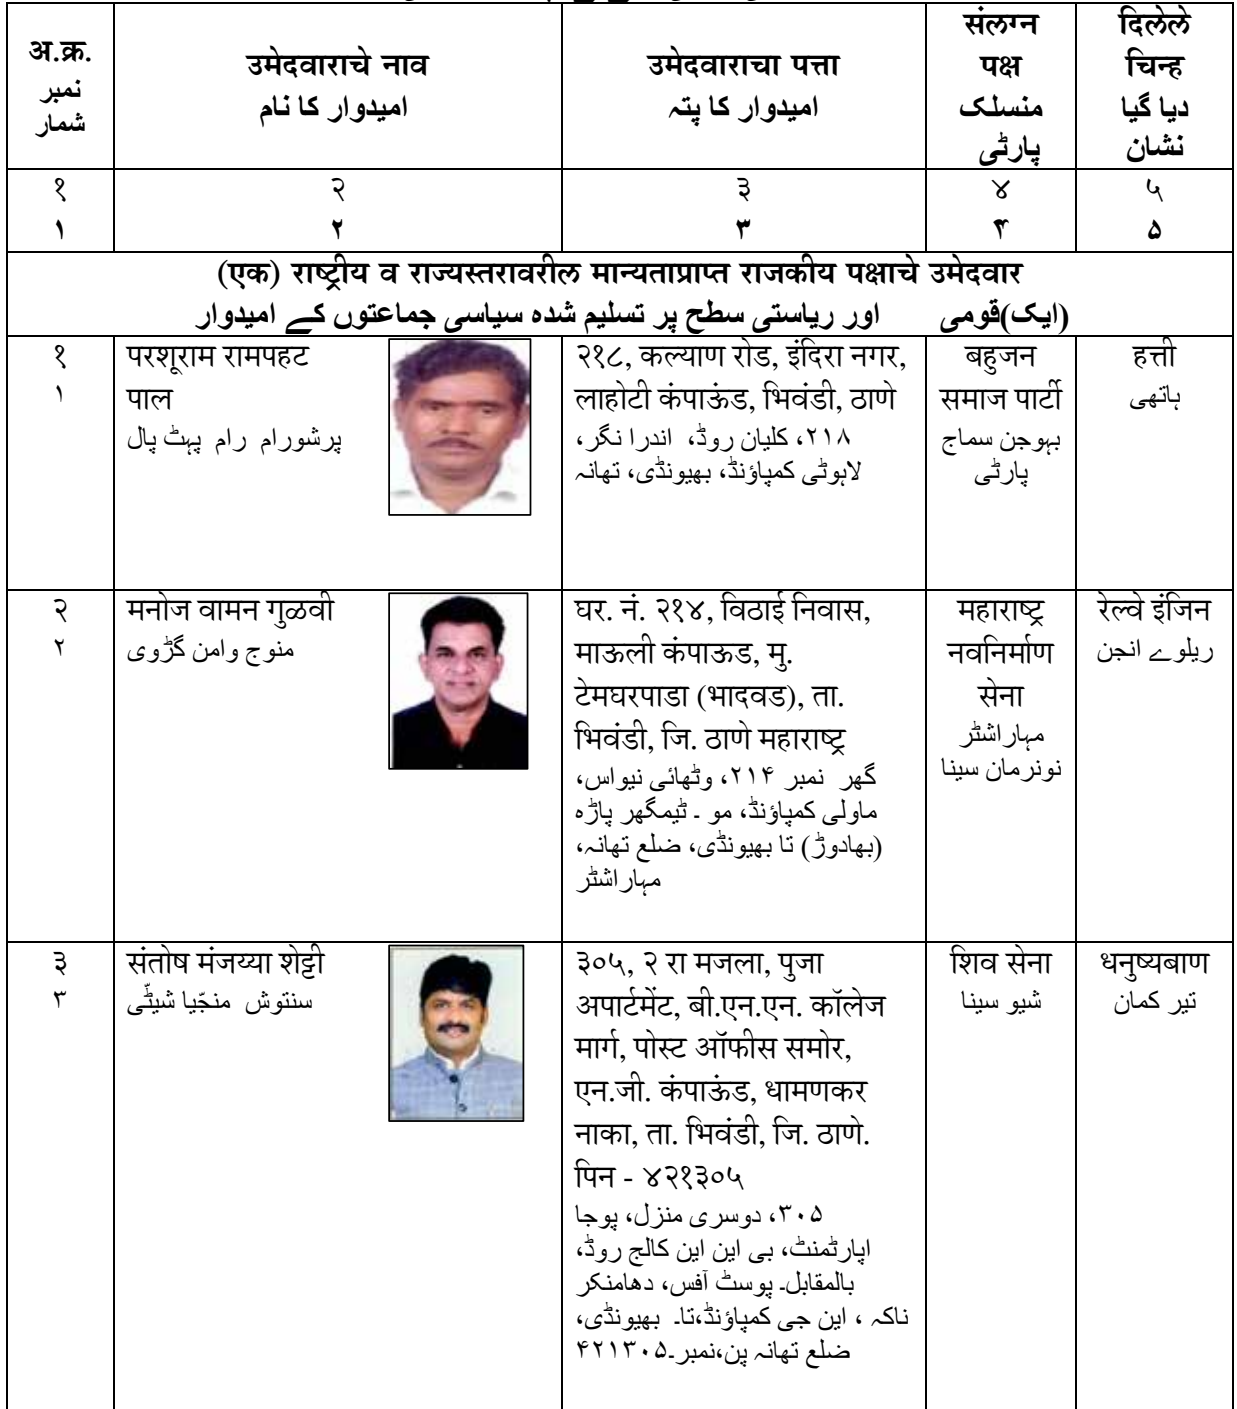 अ.क्र.
नमبر
شمار
उमेदवाराचे नाव
امیدوار کا نام
उमेदवाराचा पत्ता
امیدوار کا پتہ
संलग्न
पक्ष
منسلک
پارٹی
दिलेले
चिन्ह
دیا گیا
نشان
१
۱
२
۲
३
۳
४
۴
५
۵
(एक) राष्ट्रीय व राज्यस्तरावरील मान्यताप्राप्त राजकीय पक्षाचे उमेदवार
(ایک)قومی اور ریاستی سطح پر تسلیم شدہ سیاسی جماعتوں کے امیدوار
१
۱
परशूराम रामपहट
पाल
پرشورام رام پہٹ پال
२१८, कल्याण रोड, इंदिरा नगर,
लाहोटी कंपाऊंड, भिवंडी, ठाणे
۲۱۸، کلیان روڈ، اندرا نگر،
لاہوٹی کمپاؤنڈ، بھیونڈی، تھانہ
बहुजन
समाज पार्टी
بہوجن سماج
پارٹی
हत्ती
ہاتھی
२
۲
मनोज वामन गुळवी
منوج وامن گڑوی
घर. नं. २१४, विठाई निवास,
माऊली कंपाऊड, मु.
टेमघरपाडा (भादवड), ता.
भिवंडी, जि. ठाणे महाराष्ट्र
گھر نمبر ۲۱۴، وٹھائی نیواس،
ماولی کمپاؤنڈ، مو ۔ ٹیمگھر پاڑہ
(بھادوڑ) تا بھیونڈی، ضلع تھانہ،
مہاراشٹر
महाराष्ट्र
नवनिर्माण
सेना
مہاراشٹر
نونرمان سینا
रेल्वे इंजिन
ریلوے انجن
३
۳
संतोष मंजय्या शेट्टी
سنتوش منجّیا شیٹّی
३०५, २ रा मजला, पुजा
अपार्टमेंट, बी.एन.एन. कॉलेज
मार्ग, पोस्ट ऑफीस समोर,
एन.जी. कंपाऊंड, धामणकर
नाका, ता. भिवंडी, जि. ठाणे.
पिन - ४२१३०५
۳۰۵، دوسری منزل، پوجا
اپارٹمنٹ، بی این این کالج روڈ،
بالمقابل۔ پوسٹ آفس، دھامنکر
ناکہ ، این جی کمپاؤنڈ،تا۔ بھیونڈی،
ضلع تھانہ پن،نمبر۔۴۲۱۳۰۵
शिव सेना
شیو سینا
धनुष्यबाण
تیر کمان